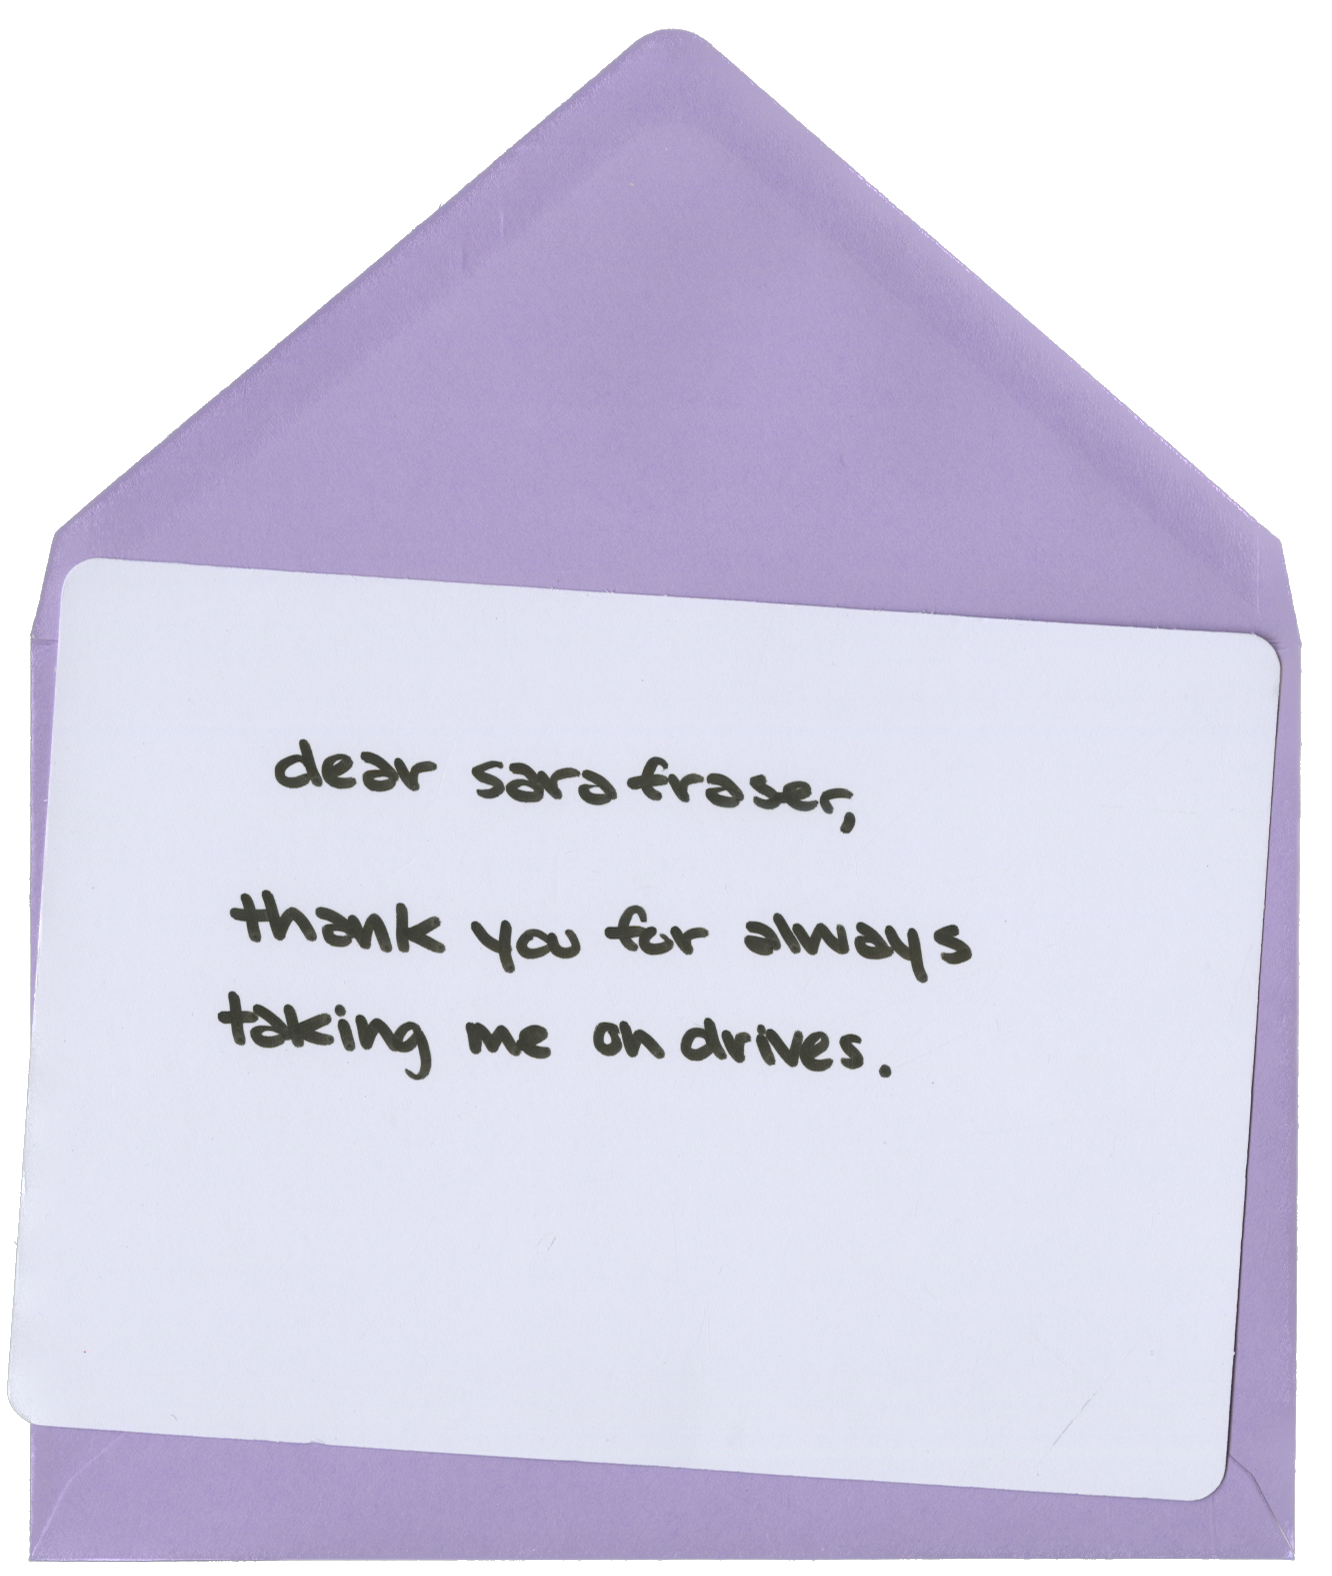 dear sara fraser,
thank you for always
taking me on drives.